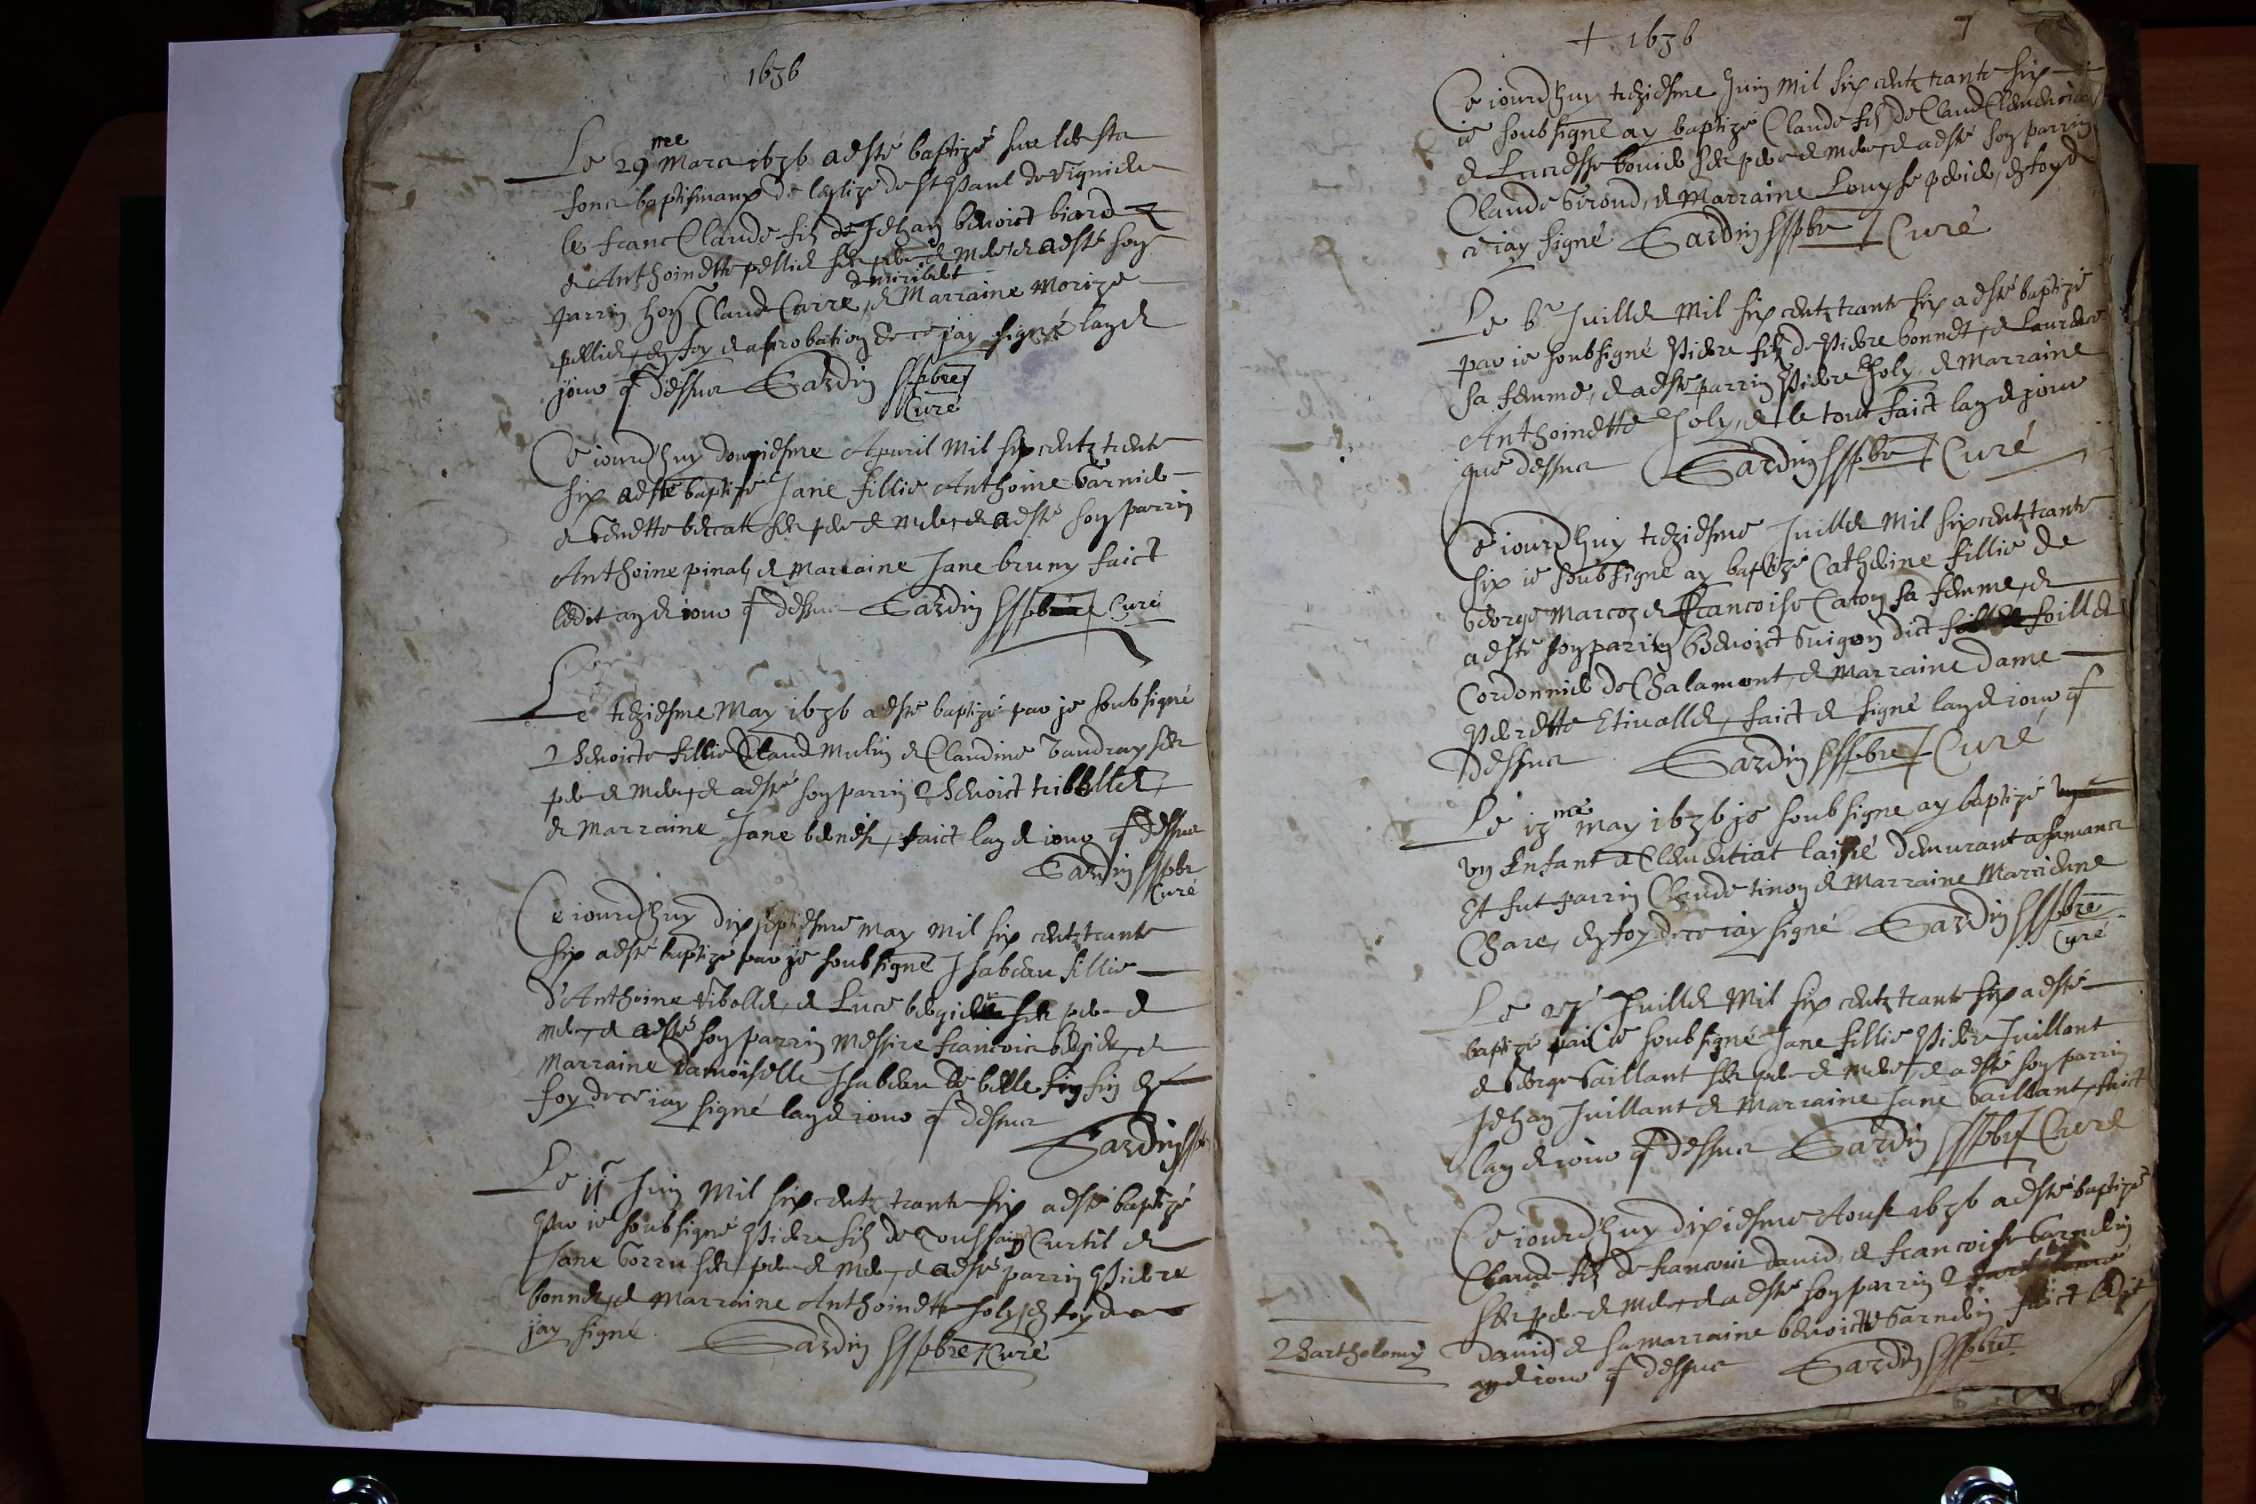 1636
Le 29me Mars 1636 a esté baptizé sur les sta
fons baptismaux de leglize de St Paul de
le franc Claude filz de Jehan benoict biard
& Anthoinette pellier ses pere & mere, & a esté son
de miribel
parrin hon Claude Carre, & Marraine Morize
pellier, en foy & aprobation de ce jay signé lan &
jour q dessus Sardin pbre
Curé
Ce iourdhuy douziesme Apuril Mil six centz trente
six a esté baptisé Jane fillie Anthoine Garnier
& benette ses pere & mere, & a esté son parrin
Anthoine pinal, & Marraine Jane bruny faict
ledit an & iour q dessus Sardin pbre Curé
Le treziesme May 1636 a esté baptizé par je soubsigné
Benoicte fillie Claud Mulin & Claudine Vaudray ses
pere & mere, & a esté son parrin Benoict tribollet
& Marraine Jane faict lan & iour q dessus
Sardin pbre
Curé
Ce iourdhuy dix septiesme May Mil six centz trante
six a esté baptizé par je soubsigné Isabeau fillie
d'Anthoine tibollet, & Luce ses pere &
mere, & a esté son parrin Messire francois &
Marraine damoiselle Isabeau de belle fin en
foy de ce iay signé lan & iour q dessus
Sardin
Le 11e Juin Mil six centz trante six a esté baptizé
Par ie soubsigné Pierre filz de Toussain Curtil &
Jane Gorru ses pere & mere, & a esté parrin Pierre
bonnet, & Marraine Anthoinette Joly, en foy de ce
jay signé Sardin pbre Curé
+ 1636
7
Ce iourdhuy treziesme Juin Mil six centz trante six
ie soubsigné ay baptizé Claude filz de Claud
& ses pere & mere, & a esté son parrin
Claude Giroud, & Marraine Louyse en foy de
ce iay signé Sardin pbre Curé
Le 6e Juillet Mil six centz trante six a esté baptizé
par ie soubsigné Pierre filz de Pierre bonnet, & Laurence
sa femme, & a esté parrin Pierre Joly, & Marraine
Anthoinette Joly, & le tout faict lan & jour
que dessus Sardin pbre Curé
Ce iourdhuy treziesme Juillet Mil six centz trante
six ie soubsigné ay baptizé Catherine fillie de
George Marcoz & francoise Caton sa femme, &
a esté son parrin Benoict Guigon dict foillet
Cordonnier de Chalamont, & Marraine dame
Pierrette Etivallet, faict & signé lan & iour q
dessus Sardin pbre Curé
Le 13me may 1636 je soubsigne ay baptizé
un Enfant a Clementiat laissé demurant a
Et fut parrin Claude tinon & Marraine Marcienne
Chare, en foy de ce iay signé Sardin pbre
Curé
Le 27e Juillet Mil six centz trante six a esté
baptizé par ie soubsigné Jane fillie Pierre Juillant
& George Gaillant ses pere & mere, & a esté son parrin
Jehan Juillant & Marraine Jane Gaillant, faict
lan & iour q dessus Sardin pbre Curé
Ce iourdhuy dixiesme Aoust 1636 a esté baptizé
Claude filz de francois david, & francoise Garnelin
ses pere & mere, & a esté son parrin
Bartholemy
david & sa marraine benoicte Garnelin faict ledit
an & iour q dessus Sardin pbre